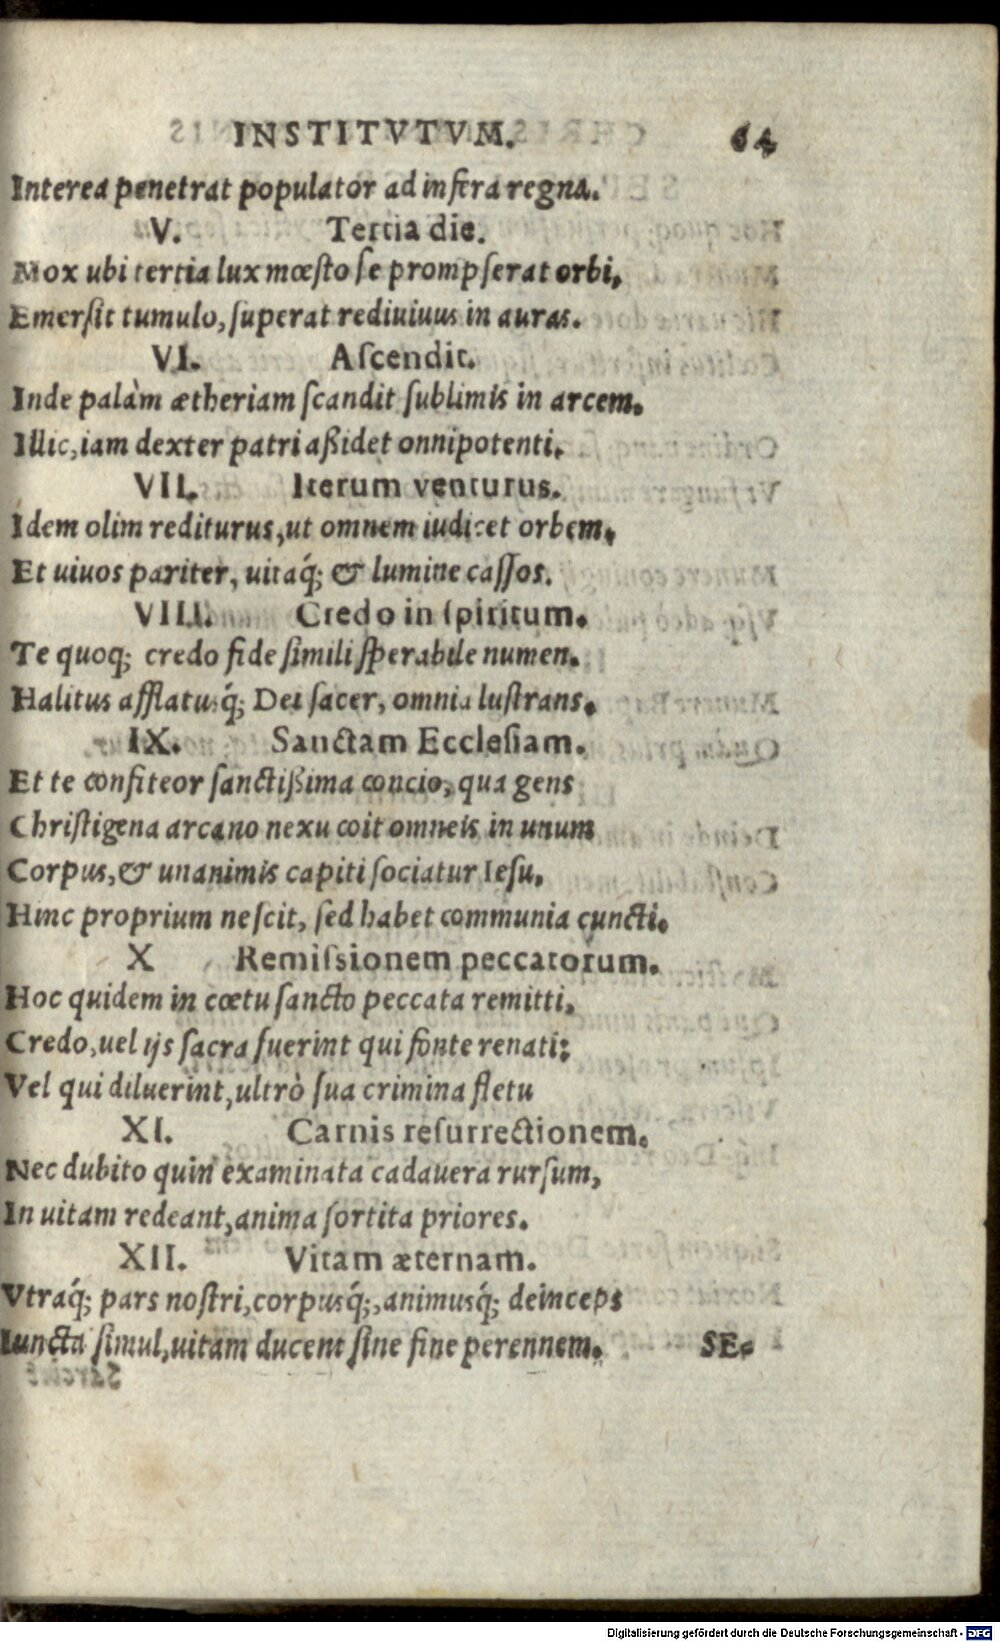 INSTITVTVM. 64
Interea penetrat populator ad infera regna.
V. Tertia die.
Mox ubi tertia lux mœsto se prompserat orbi,
Emersit tumulo, superat rediuiuus in auras.
VI. Ascendit.
Inde palàm ætheriam scandit sublimis in arcem.
Illic, iam dexter patri aßidet onnipotenti.
VII. Iterum venturus.
Idem olim rediturus, ut omnem iudicet orbem,
Et uiuos pariter, uitaq́; & lumine cassos.
VIII. Credo in spiritum.
Te quoq; credo fide simili sperabile numen.
Halitus afflatusq́; Dei sacer, omnia lustrans.
IX. Sanctam Ecclesiam.
Et te confiteor sanctißima concio, qua gens
Christigena arcano nexu coit omneis in unum
Corpus, & unanimis capiti sociatur Iesu,
Hinc proprium nescit, sed habet communia cuncti.
X Remissionem peccatorum.
Hoc quidem in cœtu sancto peccata remitti,
Credo, uel ijs sacra fuerint qui fonte renati;
Vel qui diluerint, ultrò sua crimina fletu
XI. Carnis resurrectionem.
Nec dubito quin examinata cadauera rursum,
In uitam redeant, anima sortita priores.
XII. Vitam æternam.
Vtraq́; pars nostri, corpusq́;, animusq́; deinceps
Iuncta simul, uitam ducent sine fine perennem. SE-
Digitalisierung gefördert durch die Deutsche Forschungsgemeinschaft - DFG